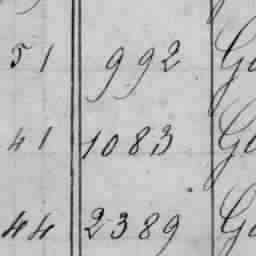 51 992 Ge
41 1083 Ge
44 2389 Ge